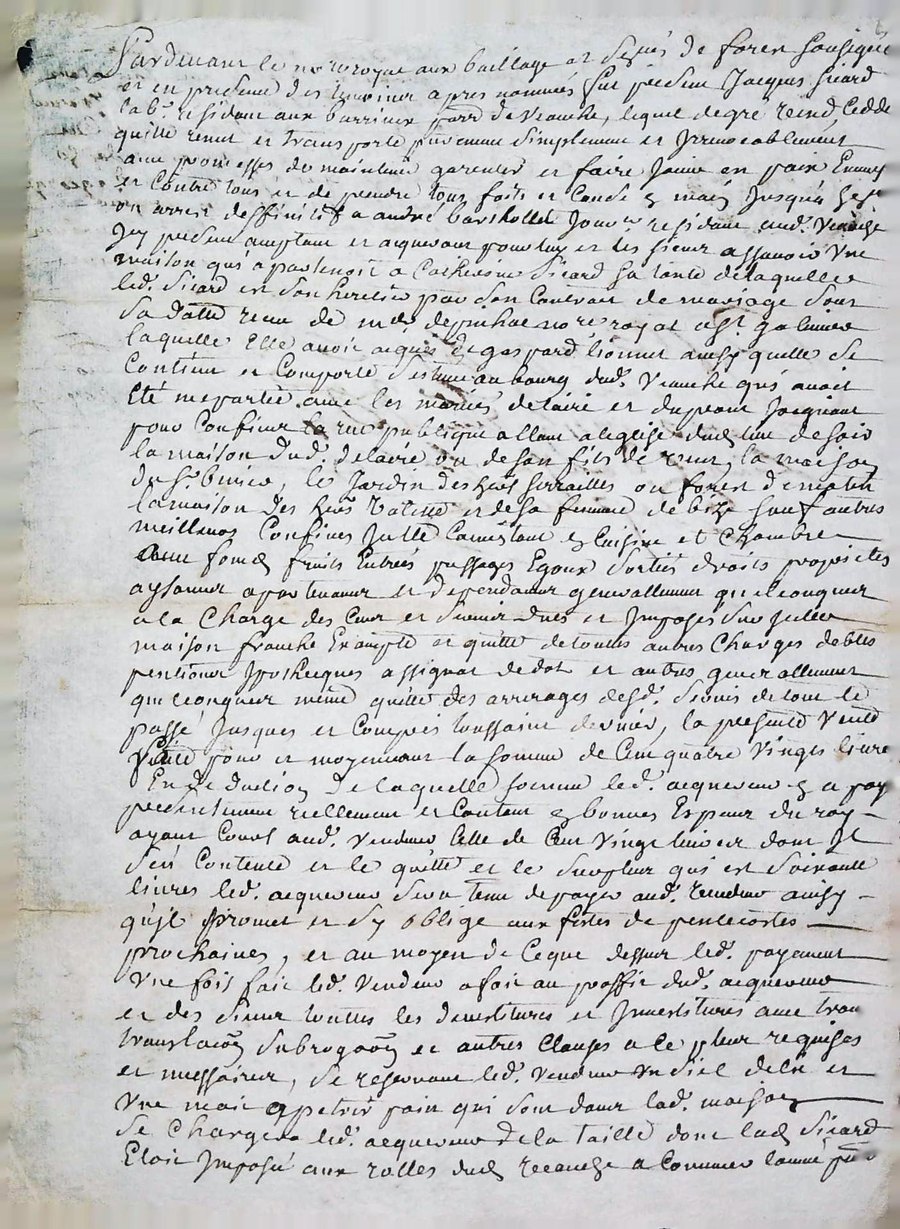 Pardevant le nore royal aux bailliage et de forez soubsigné
et en presence des temoins apres nommés fut present Jacques Sicard
labr. residant aux parr de Veauche, lequel de gré vend, cedde
quitte remet et transporte purement simplement et Irrevocablement
avec promesses de maintenir garentir et faire Jouir en paix Envers
et Contre tous et de prendre tous faits et Cause en main Jusqu'a
en arrest deffinitif a andré barthollet Jour residant aud. Veauche
Icy present acceptant et acquereur pour luy et les siens assavoir Une
maison qui apartenoit a Catherine Sicard sa tante de laquelle
led. Sicard est son heritier par son Contrat de mariage sous
sa datte recu de me nore royal a St galmier
laquelle Elle avoit acquis de gaspard lionnet ainsy quelle se
Contient et Comporte scituée au bourg dud. Veauche qui avoit
Eté mepartie avec les mariés delaire et Jacquiere
pour Confins la rue publique allant a leglise dud. lieu de soir
la maison dud. delaire ou de son fils de vent, la maison
du Sr , le Jardin des hers ou forest de matin
la maison des hers Valette et de sa femme de bize sauf autres
meilleurs Confins Icelle Consistant en Cuisine et Chambre
avec fonds fruits Entrées passages Egoux sorties droits proprietes
aysances apartenances et dependances generallement quelconques
a la Charge des Cens et servis dues et Imposés sur Icelle
maison franche Exempte et quitte de toutes autres Charges debtes
pentions Ipotheques assignat de dot et autres generallement
quelconques même quitte des arrerages desd. servis de tout le
passé Jusques et Compris toussaint dernier, la presente Vente
faitte pour et moyennant la somme de Cent quatre Vingts livres
En deduction de laquelle somme led. acquereur en a payé
presentement reellement et Contant en bonnes Espèces du roy
ayant Cours aud. Vendeur Celle de Cent Vingt livres dont Il
s'est Contenté et le quitte et le surplus qui est soixante
livres led. acquereur sera tenu de payer aud. vendeur ainsy
qu'il promet et s'y oblige aux festes de pentecostes
prochaines, et au moyen de Ceque dessus led. payement
Une fois fait led. Vendeur a fait au proffit dud. acquereur
et des siens touttes les devestitures et Investitures avec
translaõn subrogaõn et autres Clauses a ce plus requises
et necessaires, se reservant led. Vendeur Un et
Une mait a petrir pain qui sont dans lad. maison
se Chargera led. acquereur de la taille dont led. Sicard
Etoit Imposé aux rolles dud. Veauche a Commencer lannée